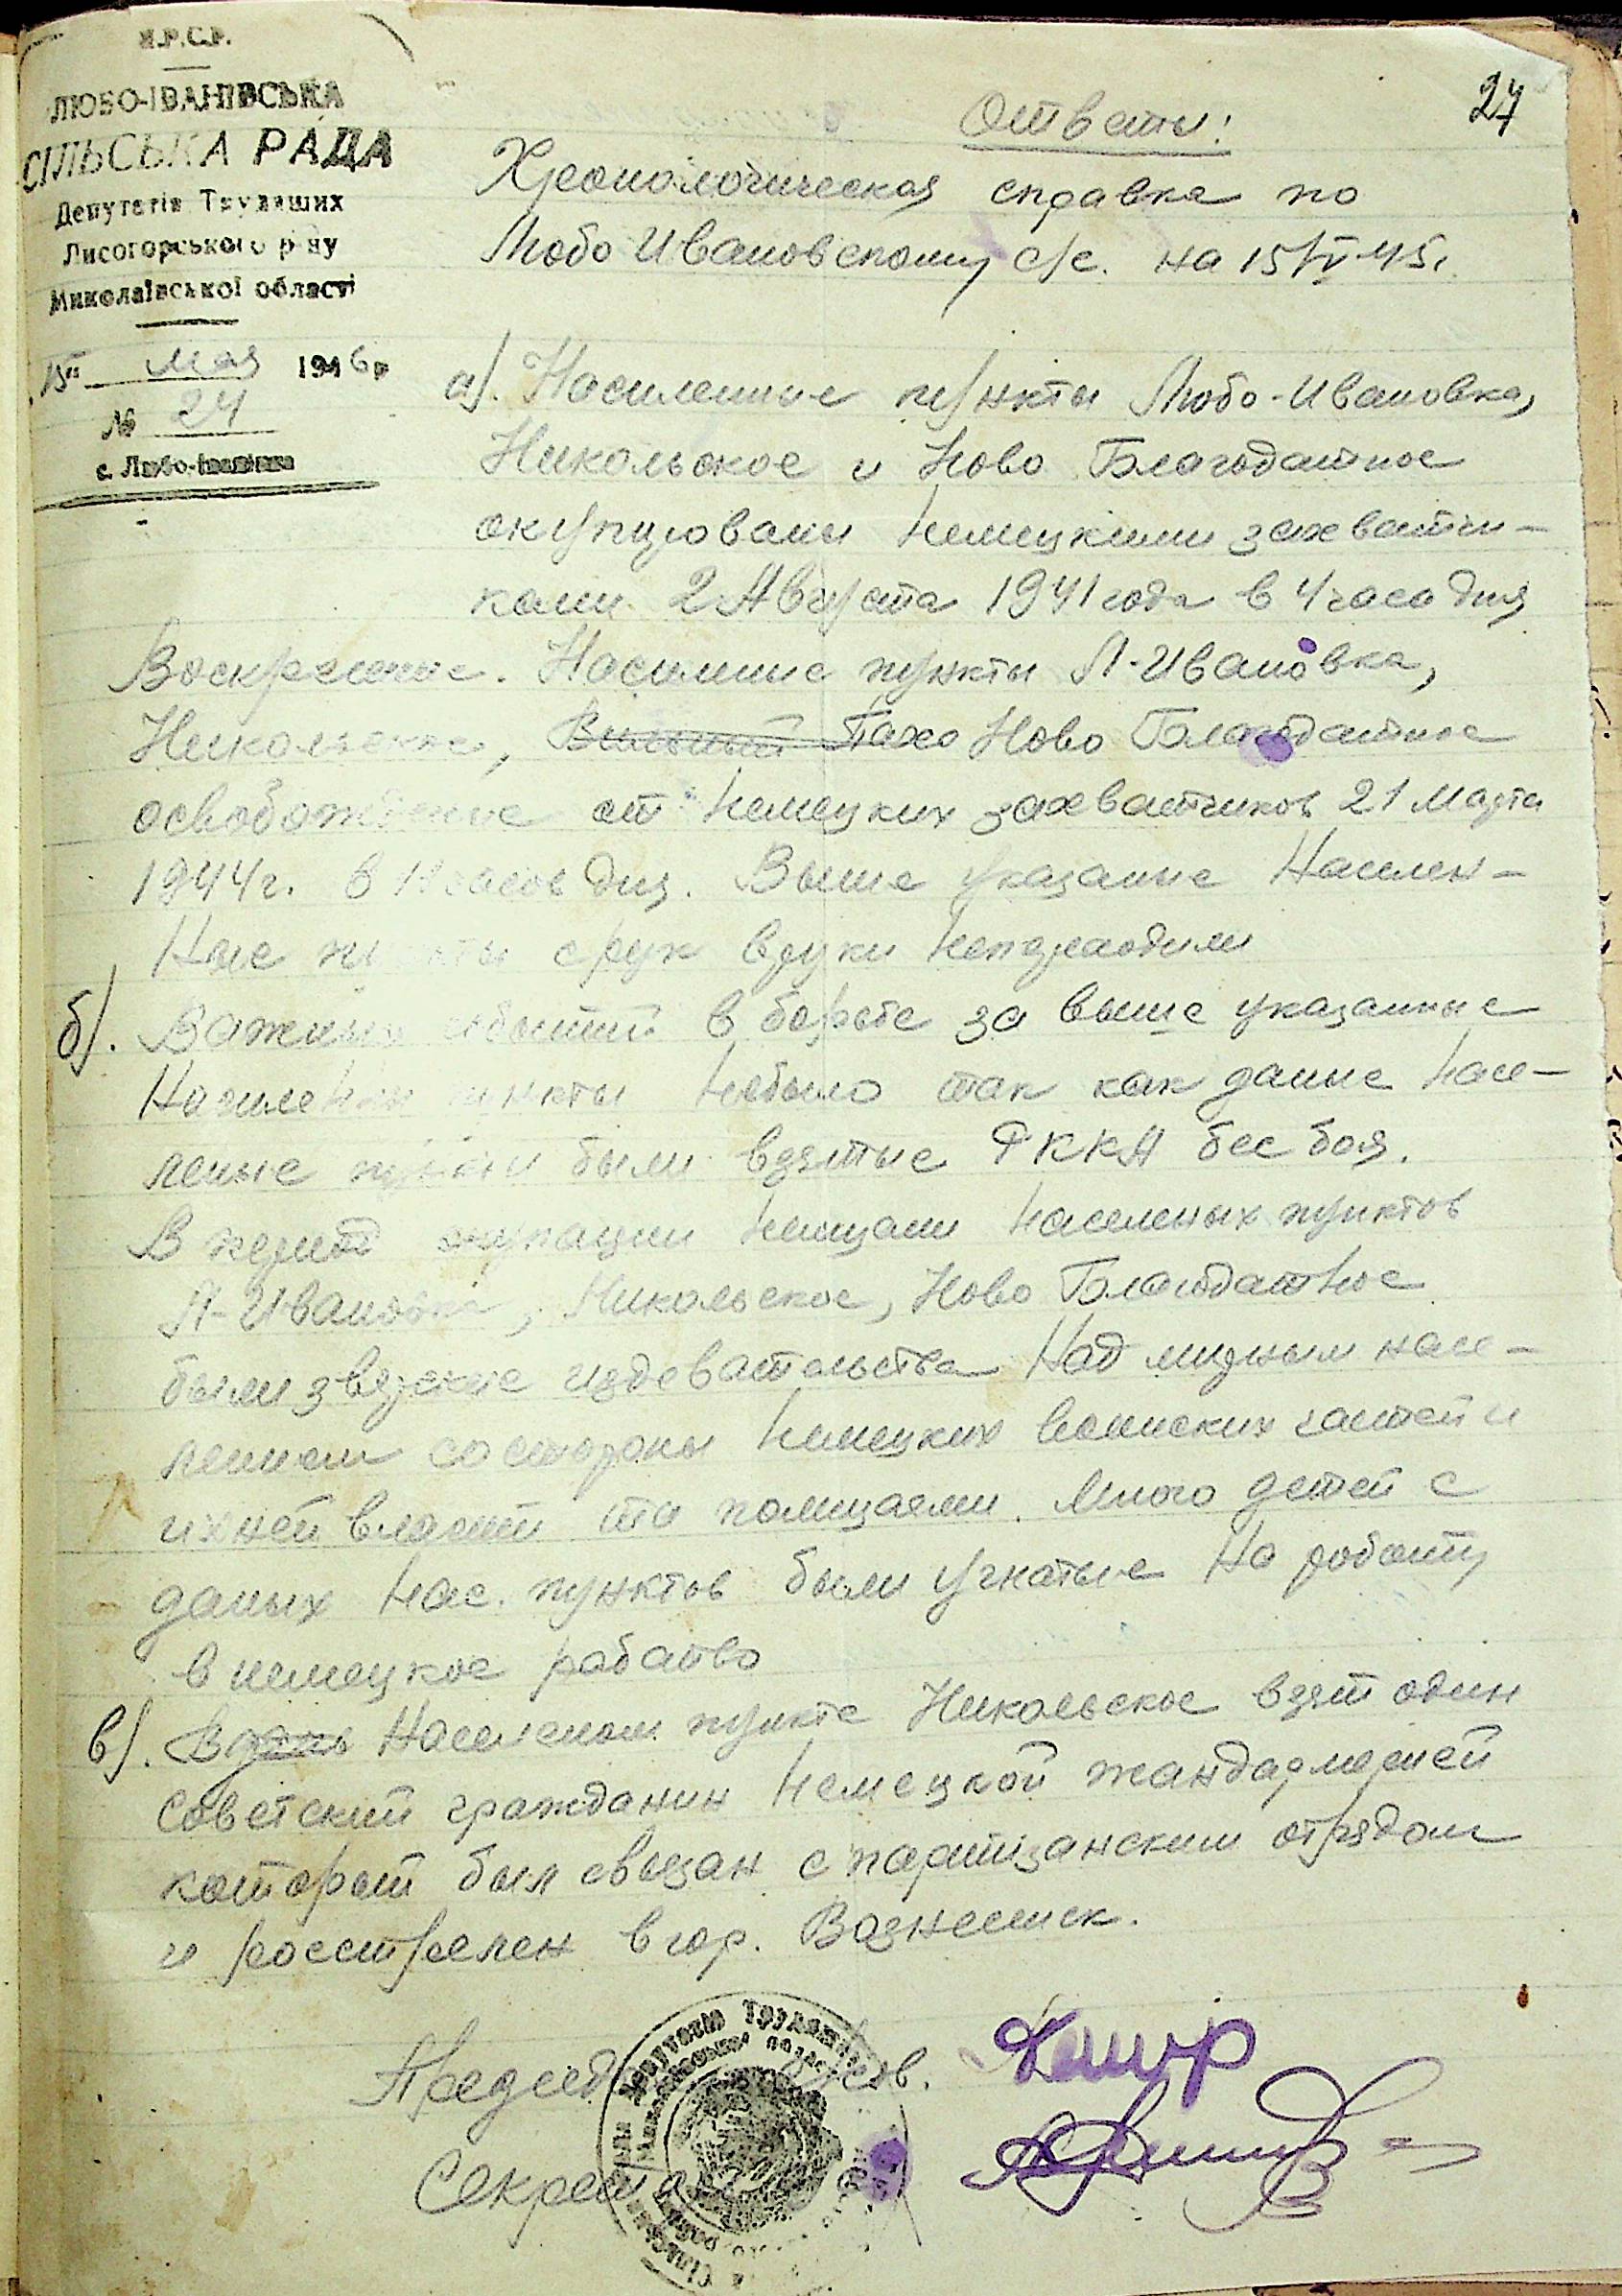 У.Р.С.Р.
ЛЮБО-ІВАНІВСЬКА
СІЛЬСЬКА РАДА
Депутатів Трудящих
Лисогорського р-ну
Миколаївської області
15" мая 1946 р.
№ 24
с. Любо-Іванівка
27
Ответы:
Хронологическая справка по
Любо Ивановскому с/с. на 15/V 45г.
а). Насиленные пункты Любо-Ивановка,
Никольское и Ново Благодатное
окупцованы немецкими захватчи-
ками 2 Августа 1941 года в 4 часа дня
Воскресение. Населиные пункты Л-Ивановка,
Никольское, Ново Благодатное
освобождение от немецких захватчиков 21 марта
1944г. в часов дня. Выше указаные Населен-
ные пункты с рук вруки непереходили
б). Важных событий в борьбе за выше указанные
Насиленые пункты небыло так как даные насе-
леные пункты были взятые РККА бес боя.
В период окупации немцами населеных пунктов
Л-Ивановка, Никольское, Ново Благодатное
были зверские издевательства Над мирным насе-
лением состороны немецких воинских частей и
ихней власти та полицаями. Много детей с
даных нас. пунктов были угнатые На роботу
в немецкое рабство
в). Населеном пункте Никольское взят один
советский гражданин немецкой жандармерией
которыт был свызан с партизанским отрядом
и росстрелен в гор. Вознесенск.
Председ сов.
Секретарь